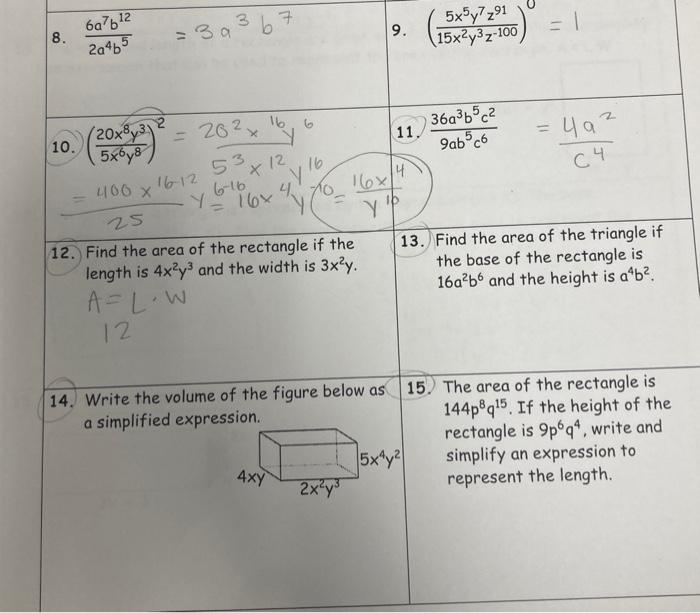 8. 6a⁷b¹² / 2a⁴b⁵ = 3a³b⁷
9. (5x⁵y⁷z⁹¹ / 15x²y³z⁻¹⁰⁰)⁰ = 1
10. (20x⁸y³ / 5x⁶y⁸)² = 20²x¹⁶y⁶ / 5³x¹²y¹⁶
= 400x¹⁶⁻¹² / 25 y⁶⁻¹⁶ = 16x⁴y⁻¹⁰ = 16x⁴ / y¹⁰
11. 36a³b⁵c² / 9ab⁵c⁶ = 4a² / c⁴
12. Find the area of the rectangle if the
length is 4x²y³ and the width is 3x²y.
A = L · W
12
13. Find the area of the triangle if
the base of the rectangle is
16a²b⁶ and the height is a⁴b².
14. Write the volume of the figure below as
a simplified expression.
5x⁴y²
4xy
2x²y³
15. The area of the rectangle is
144p⁸q¹⁵. If the height of the
rectangle is 9p⁶q⁴, write and
simplify an expression to
represent the length.